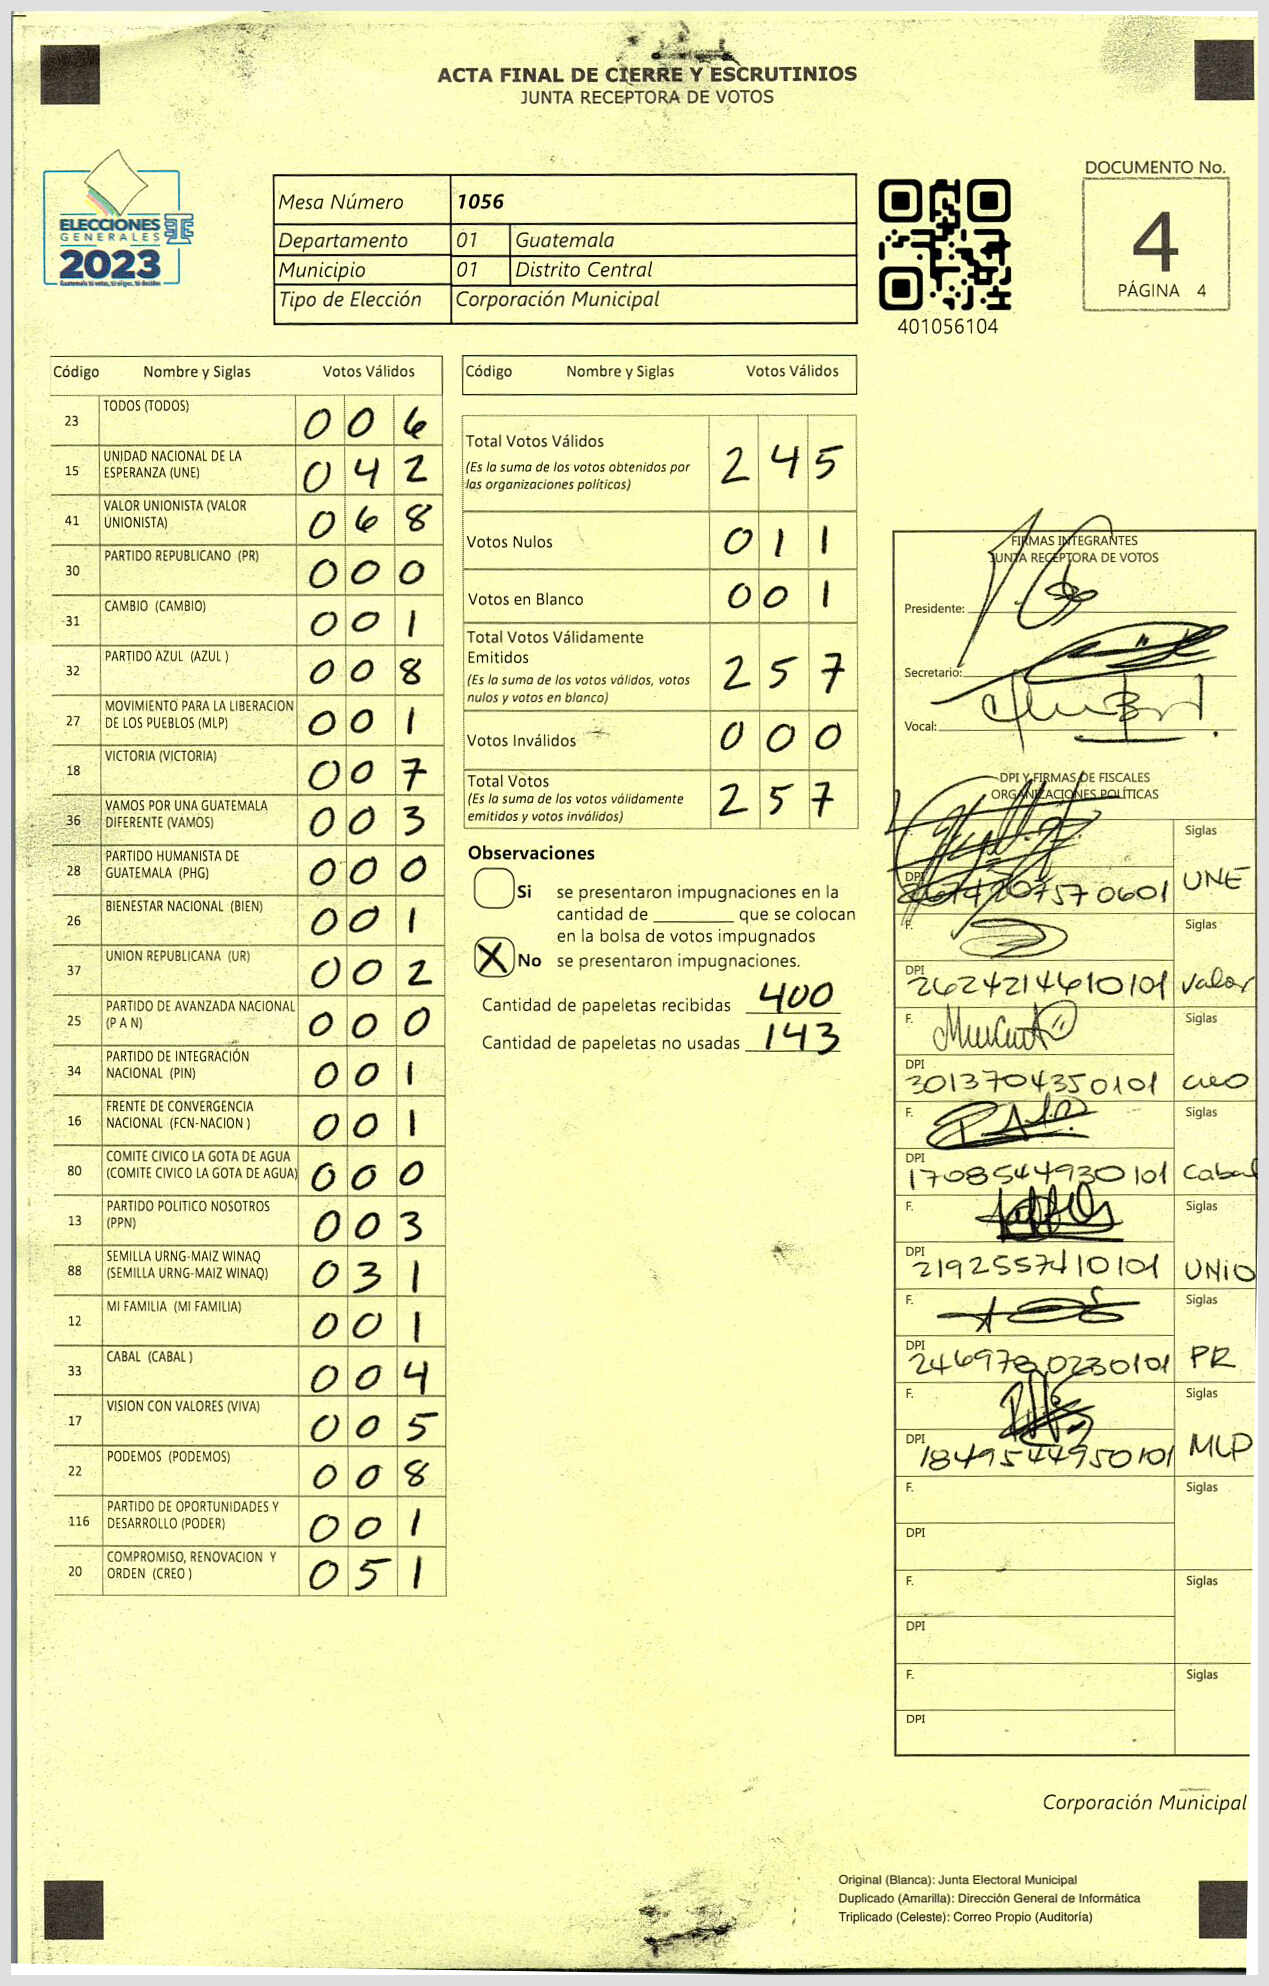 ACTA FINAL DE CIERRE Y ESCRUTINIOS
JUNTA RECEPTORA DE VOTOS
ELECCIONES
GENERALES
2023
Mesa Número 1056
Departamento 01 Guatemala
Municipio 01 Distrito Central
Tipo de Elección Corporación Municipal
401056104
DOCUMENTO No.
4
PÁGINA 4
Código Nombre y Siglas Votos Válidos
23 TODOS (TODOS) 0 0 6
15 UNIDAD NACIONAL DE LA
ESPERANZA (UNE) 0 4 2
41 VALOR UNIONISTA (VALOR
UNIONISTA) 0 6 8
30 PARTIDO REPUBLICANO (PR) 0 0 0
31 CAMBIO (CAMBIO) 0 0 1
32 PARTIDO AZUL (AZUL ) 0 0 8
27 MOVIMIENTO PARA LA LIBERACION
DE LOS PUEBLOS (MLP) 0 0 1
18 VICTORIA (VICTORIA) 0 0 7
36 VAMOS POR UNA GUATEMALA
DIFERENTE (VAMOS) 0 0 3
28 PARTIDO HUMANISTA DE
GUATEMALA (PHG) 0 0 0
26 BIENESTAR NACIONAL (BIEN) 0 0 1
37 UNION REPUBLICANA (UR) 0 0 2
25 PARTIDO DE AVANZADA NACIONAL
(P A N) 0 0 0
34 PARTIDO DE INTEGRACIÓN
NACIONAL (PIN) 0 0 1
16 FRENTE DE CONVERGENCIA
NACIONAL (FCN-NACION ) 0 0 1
80 COMITE CIVICO LA GOTA DE AGUA
(COMITE CIVICO LA GOTA DE AGUA) 0 0 0
13 PARTIDO POLITICO NOSOTROS
(PPN) 0 0 3
88 SEMILLA URNG-MAIZ WINAQ
(SEMILLA URNG-MAIZ WINAQ) 0 3 1
12 MI FAMILIA (MI FAMILIA) 0 0 1
33 CABAL (CABAL ) 0 0 4
17 VISION CON VALORES (VIVA) 0 0 5
22 PODEMOS (PODEMOS) 0 0 8
116 PARTIDO DE OPORTUNIDADES Y
DESARROLLO (PODER) 0 0 1
20 COMPROMISO, RENOVACION Y
ORDEN (CREO ) 0 5 1
Código Nombre y Siglas Votos Válidos
Total Votos Válidos 2 4 5
(Es la suma de los votos obtenidos por
las organizaciones políticas)
Votos Nulos 0 1 1
Votos en Blanco 0 0 1
Total Votos Válidamente
Emitidos 2 5 7
(Es la suma de los votos válidos, votos
nulos y votos en blanco)
Votos Inválidos 0 0 0
Total Votos 2 5 7
(Es la suma de los votos válidamente
emitidos y votos inválidos)
Observaciones
Si se presentaron impugnaciones en la
cantidad de ________ que se colocan
en la bolsa de votos impugnados
X No se presentaron impugnaciones.
Cantidad de papeletas recibidas 400
Cantidad de papeletas no usadas 143
FIRMAS INTEGRANTES
JUNTA RECEPTORA DE VOTOS
Presidente:
Secretario:
Vocal:
DPI Y FIRMAS DE FISCALES
ORGANIZACIONES POLÍTICAS
Siglas
DPI UNE
F. Siglas
DPI 2624214610101 Valor
F. Siglas
DPI 3013704350101 creo
F. Siglas
DPI 1708544930101 Cabal
F. Siglas
DPI 2192557410101 UNiO
F. Siglas
DPI PR
F. Siglas
DPI 1849544950101 MLP
F. Siglas
DPI
F. Siglas
DPI
F. Siglas
DPI
Corporación Municipal
Original (Blanca): Junta Electoral Municipal
Duplicado (Amarilla): Dirección General de Informática
Triplicado (Celeste): Correo Propio (Auditoría)